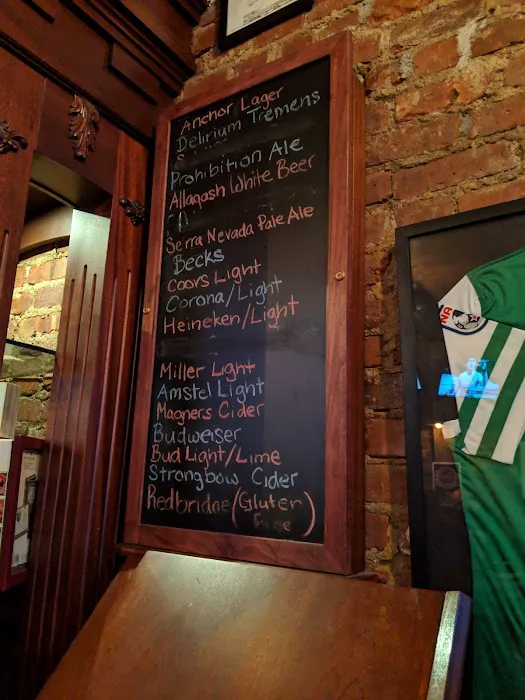 Anchor Lager
Delirium Tremens
Prohibition Ale
Allagash White Beer
Serra Nevada Pale Ale
Becks
Coors Light
Corona/Light
Heineken/Light
Miller Light
Amstel Light
Magners Cider
Budweiser
Bud Light/Lime
Strongbow Cider
Redbridge (Gluter
Free)